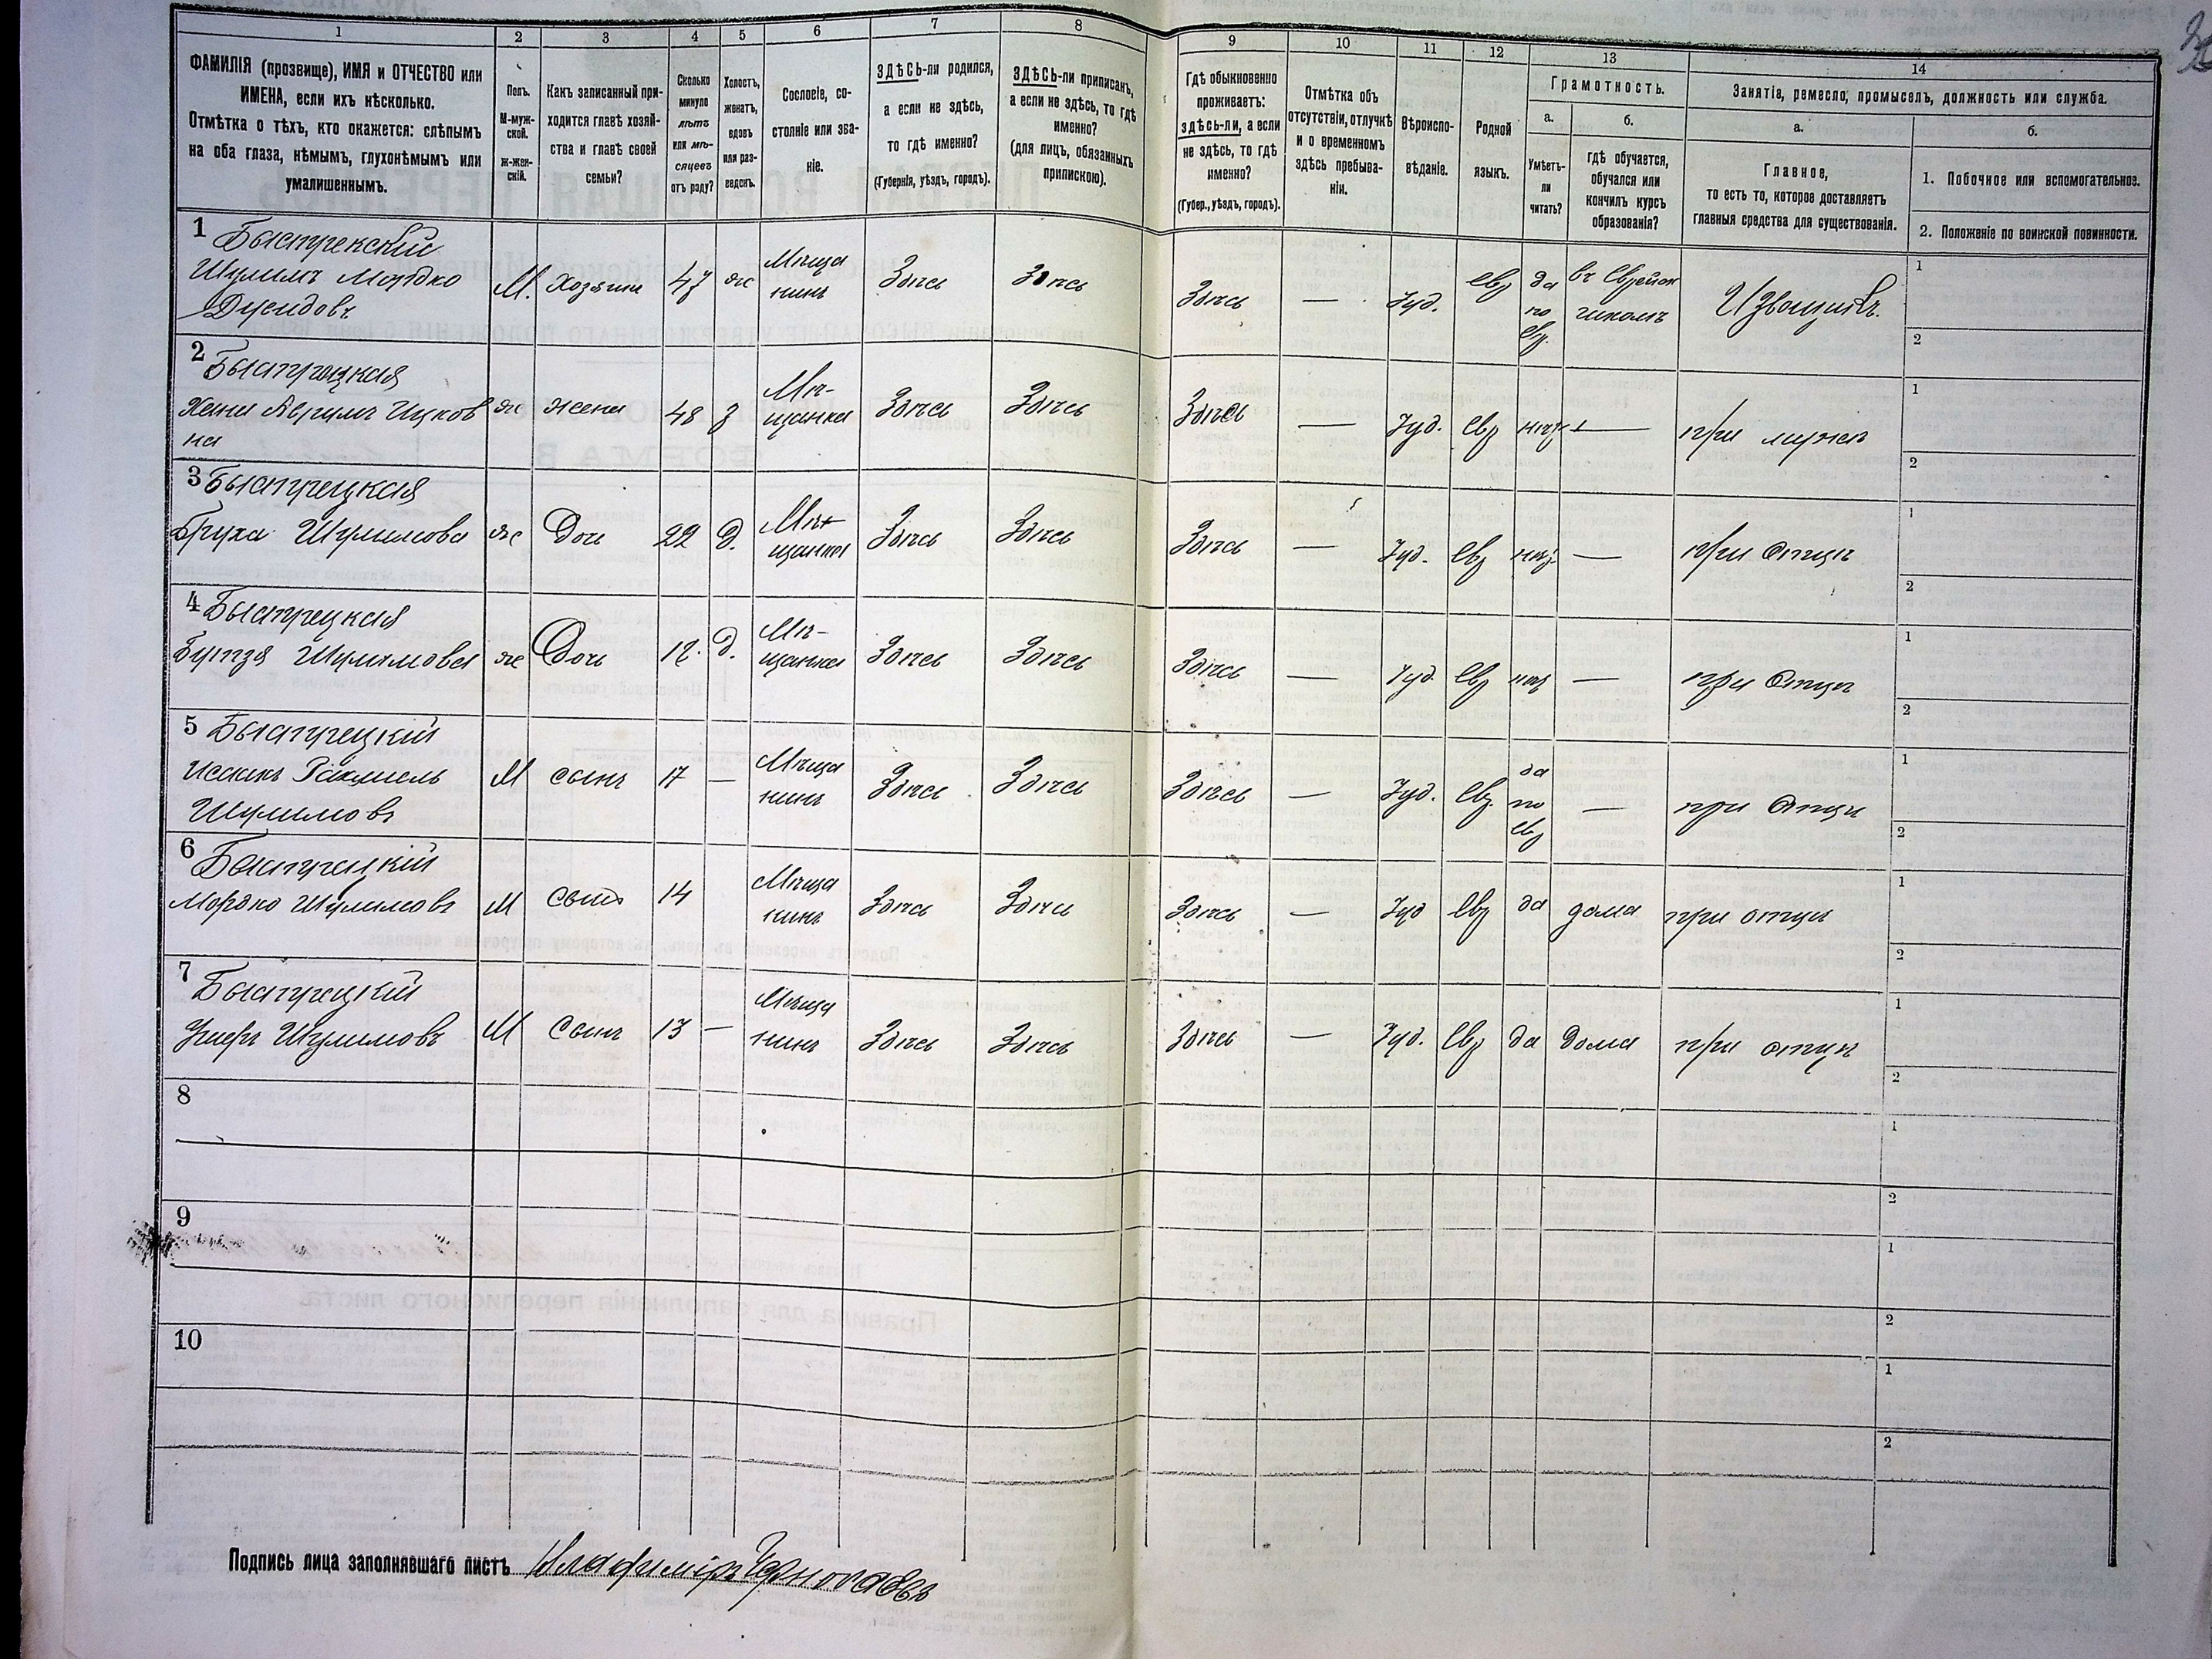 1
2
3
4
5
6
7
8
9
10
11
12
13
14
ФАМИЛІЯ (прозвище), ИМЯ и ОТЧЕСТВО или
ИМЕНА, если ихъ нѣсколько.
Отмѣтка о тѣхъ, кто окажется: слѣпымъ
на оба глаза, нѣмымъ, глухонѣмымъ или
умалишеннымъ.
Полъ.
М-муж-
ской.
ж-жен-
скій.
Какъ записанный при-
ходится главѣ хозяй-
ства и главѣ своей
семьи?
Сколько
минуло
лѣтъ
или мѣ-
сяцевъ
отъ роду?
Холостъ,
женатъ,
вдовъ
или раз-
веденъ.
Сословіе, со-
стояніе или зва-
ніе.
ЗДѢСЬ-ли родился,
а если не здѣсь,
то гдѣ именно?
(Губернія, уѣздъ, городъ).
ЗДѢСЬ-ли приписанъ,
а если не здѣсь, то гдѣ
именно?
(для лицъ, обязанныхъ
припискою).
Гдѣ обыкновенно
проживаетъ:
здѣсь-ли, а если
не здѣсь, то гдѣ
именно?
(Губер., уѣздъ, городъ).
Отмѣтка объ
отсутствіи, отлучкѣ
и о временномъ
здѣсь пребыва-
ніи.
Вѣроиспо-
вѣданіе.
Родной
языкъ.
Грамотность.
а.
Умѣетъ-
ли
читать?
б.
гдѣ обучается,
обучался или
кончилъ курсъ
образованія?
Занятіе, ремесло, промыселъ, должность или служба.
а.
Главное,
то есть то, которое доставляетъ
главныя средства для существованія.
б.
1. Побочное или вспомогательное.
2. Положеніе по воинской повинности.
1
Шулимъ Мордко
М. Хозяин 47 ж Мѣща
нинъ Здѣсь Здѣсь Здѣсь — Іуд. Евр да
по
евр. въ Еврейск
школѣ Извощикъ.
1
2
2 Быстрецкая
ж жена 48 з Мѣ-
щанка Здѣсь Здѣсь Здѣсь — Іуд. Евр — при мужѣ
1
2
3 Быстрецкая
Шулимова ж Доч 22 Д. Мѣ-
щанка Здѣсь Здѣсь Здѣсь — Іуд. Евр — при Отцѣ
1
2
4 Быстрецкая
Шулимова ж Доч 12. Д. Мѣ-
щанка Здѣсь Здѣсь Здѣсь — Іуд. Евр — при Отцѣ
1
2
5 Быстрецкій
Шулимовъ
М сынъ 17 — Мѣща
нинъ Здѣсь Здѣсь Здѣсь — Іуд. Евр. да
по
евр — при Отцѣ
1
2
6 Быстрецкій
Мордко Шулимовъ М сынъ 14 Мѣща
нинъ Здѣсь Здѣсь Здѣсь — Іуд Евр да дома при отцѣ
1
2
7 Быстрецкій
Шулимовъ М Сынъ 13 — Мѣща
нинъ Здѣсь Здѣсь Здѣсь — Іуд. Евр да дома при отцѣ
1
2
8
1
2
9
1
2
10
1
2
Подпись лица заполнявшаго листъ Владиміръ